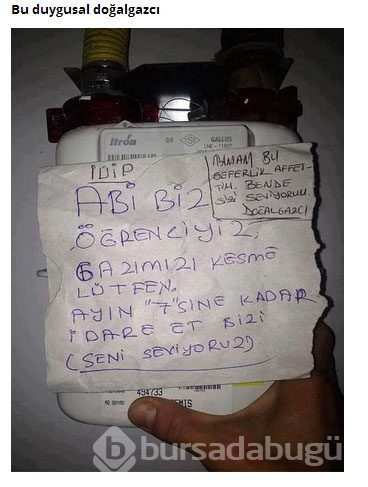 Bu duygusal doğalgazcı
Itrón
G4
GALLUS
ABİ BİZ
ÖĞRENCİYİZ,
GAZIMIZI KESME
LÜTFEN.
AYIN "7"SİNE KADAR
İDARE ET BİZİ
(SENİ SEVİYORUZ)
TAMAM BU
SEFERLİK AFFET-
TİM. BENDE
SİZİ SEVİYORUM
DOĞALGAZCI
494733
bursadabugü